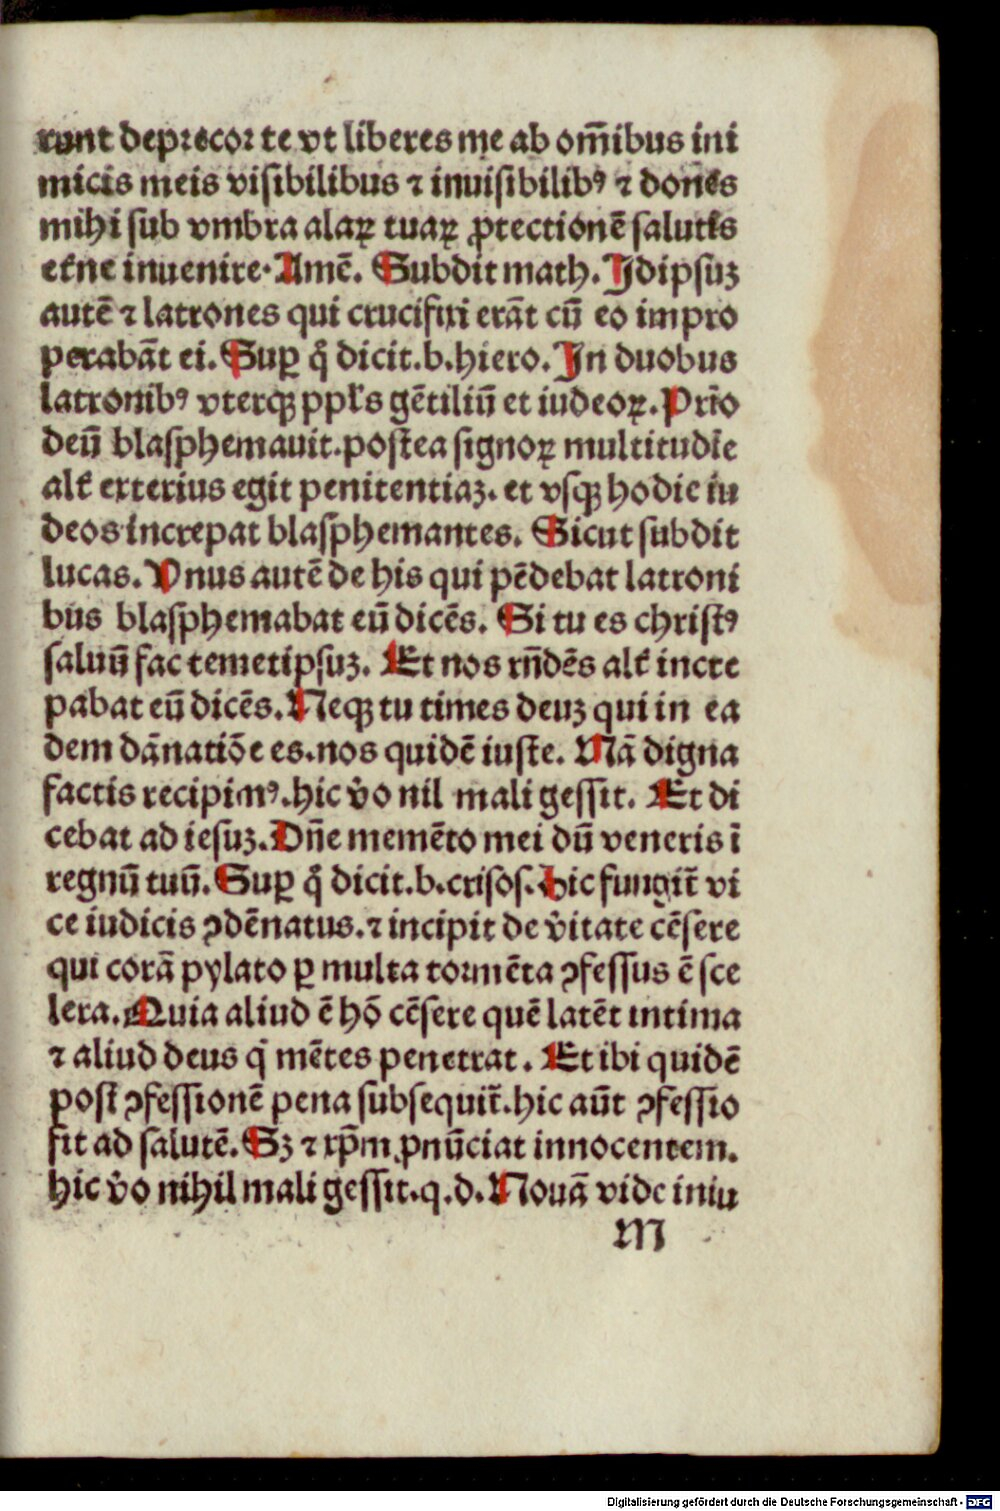 runt deprecor te vt liberes me ab om̄ibus ini
micis meis visibilibus ⁊ inuisibilibꝰ ⁊ dones
mihi sub vmbra alaꝝ tuaꝝ ꝓtectionē salutis
et̾ne inuenire. Amē. Subdit math. Idipsuꝫ
autē ⁊ latrones qui crucifixi erāt cū eo impro
perabāt ei. Suꝑ q̊ dicit.b.hiero. In duobus
latronibꝰ vterqꝫ ppl̓s gētiliū et iudeoꝝ. Prīo
deū blasphemauit.postea signoꝝ multitudīe
alt̾ exterius egit penitentiaꝫ. et vsqꝫ hodie iu
deos increpat blasphemantes. Sicut subdit
lucas. Vnus autē de his qui pēdebat latroni
bus blasphemabat eū dicēs. Si tu es christꝰ
saluū fac temetipsuꝫ. Et nos rn̄dēs alt̾ incre
pabat eū dicēs. Neqꝫ tu times deuꝫ qui in ea
dem dānatiōe es.nos quidē iuste. Nā digna
factis recipimꝰ.hic v̊o nil mali gessit. Et di
cebat ad iesuꝫ. Dn̄e memēto mei dū veneris ī
regnū tuū. Suꝑ q̊ dicit.b.crisos. Hic fungit̄ vi
ce iudicis ꝯdēnatus.⁊ incipit de v̊itate cēsere
qui corā pylato ꝑ multa tormēta ꝯfessus ē sce
lera. Quia aliud ē hō cēsere quē latēt intima
⁊ aliud deus q̇ mētes penetrat. Et ibi quidē
post ꝯfessionē pena subsequit̄.hic aūt ꝯfessio
fit ad salutē. Sꝫ ⁊ xp̄m ꝓnūciat innocentem.
hic v̊o nihil mali gessit.q.d. Nouā vide iniu
M
Digitalisierung gefördert durch die Deutsche Forschungsgemeinschaft - DFG